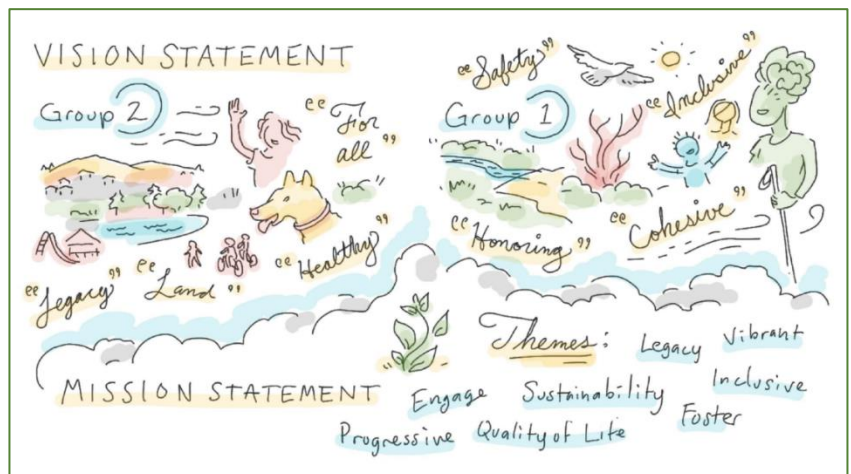 VISION STATEMENT
Group 2
"For
all"
"Healthy"
"Legacy"
"Land"
Group 1
"Safety"
"Inclusive"
"Honoring"
"Cohesive"
MISSION STATEMENT
Themes:
Legacy
Vibrant
Engage
Sustainability
Inclusive
Progressive
Quality of Life
Foster